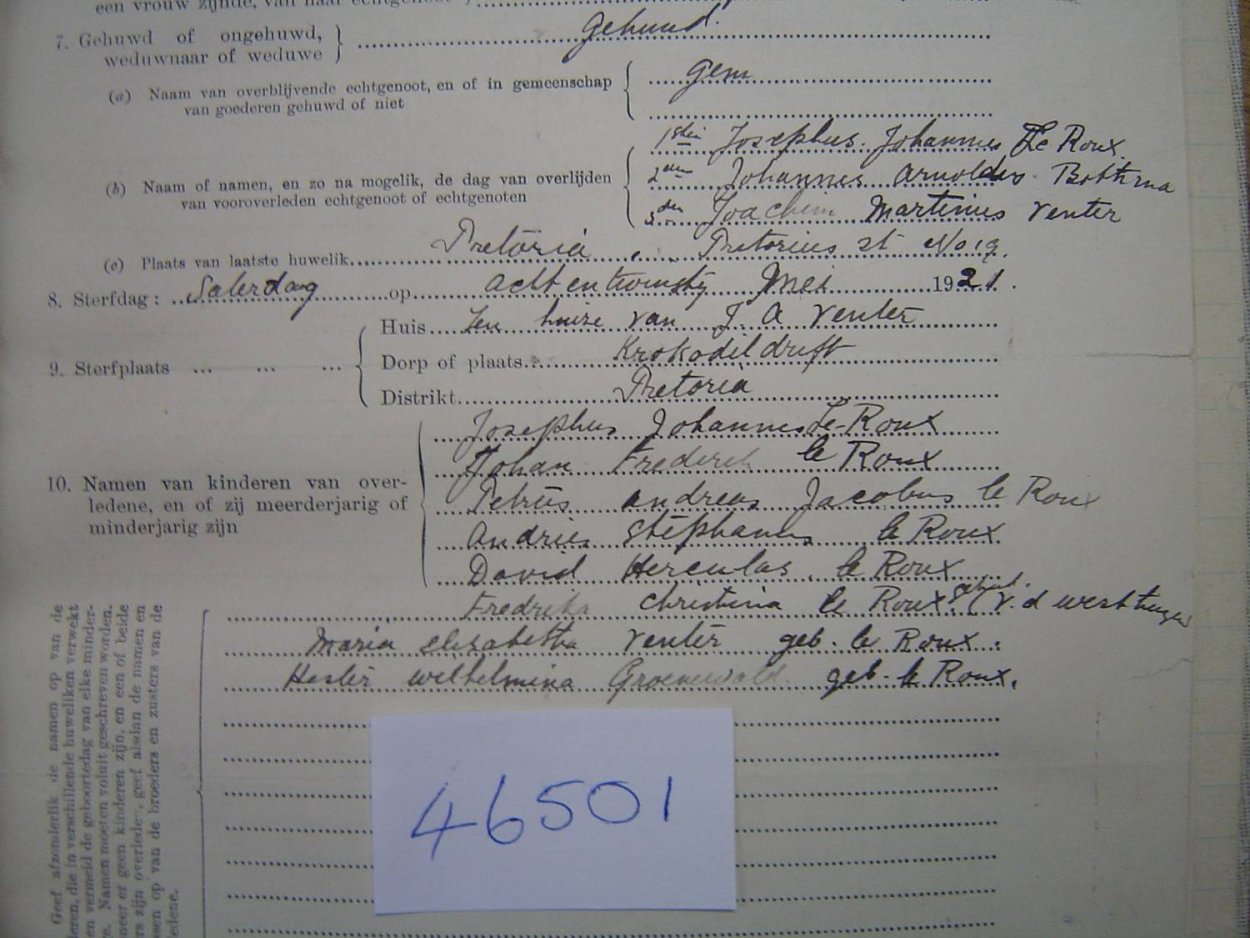 een vrouw zijnde, van haar echtgenoot
7. Gehuwd of ongehuwd, weduwnaar of weduwe } Gehuwd.
(a) Naam van overblijvende echtgenoot, en of in gemeenschap van goederen gehuwd of niet { gem
(b) Naam of namen, en zo na mogelik, de dag van overlijden van vooroverleden echtgenoot of echtgenoten
1sten Josephus Johannes Le Roux
2den Johannes Arnoldus Bothma
3den Joachem Martinus Venter
(c) Plaats van laatste huwelik Pretoria, Pretorius st No 19.
8. Sterfdag: Saterdag op acht en twinstig Mei 1921.
9. Sterfplaats ... ... ...
Huis Ten huize van J A Venter
Dorp of plaats Krokodildrift
Distrikt Pretoria
10. Namen van kinderen van overledene, en of zij meerderjarig of minderjarig zijn
Josephus Johannes Le Roux
Johan Frederik le Roux
Petrus andreas Jacobus le Roux
Andries Stephanus le Roux
David Herculas le Roux
Fredrika Christina le Roux (v. d westhuyzen
Maria elisabetha Venter geb. le Roux.
Hester wilhelmina Groenewald geb. le Roux.
Geef afzonderlik de namen op van de
deren, die in verschillende huweliken verwekt
en vermeld de geboortedag van elke minder-
Namen moeten voluit geschreven worden.
neer er geen kinderen zijn, en een of beide
rs zijn overleden, geef alsdan de namen en
sen op van de broeders en zusters van de
ledene.
46501